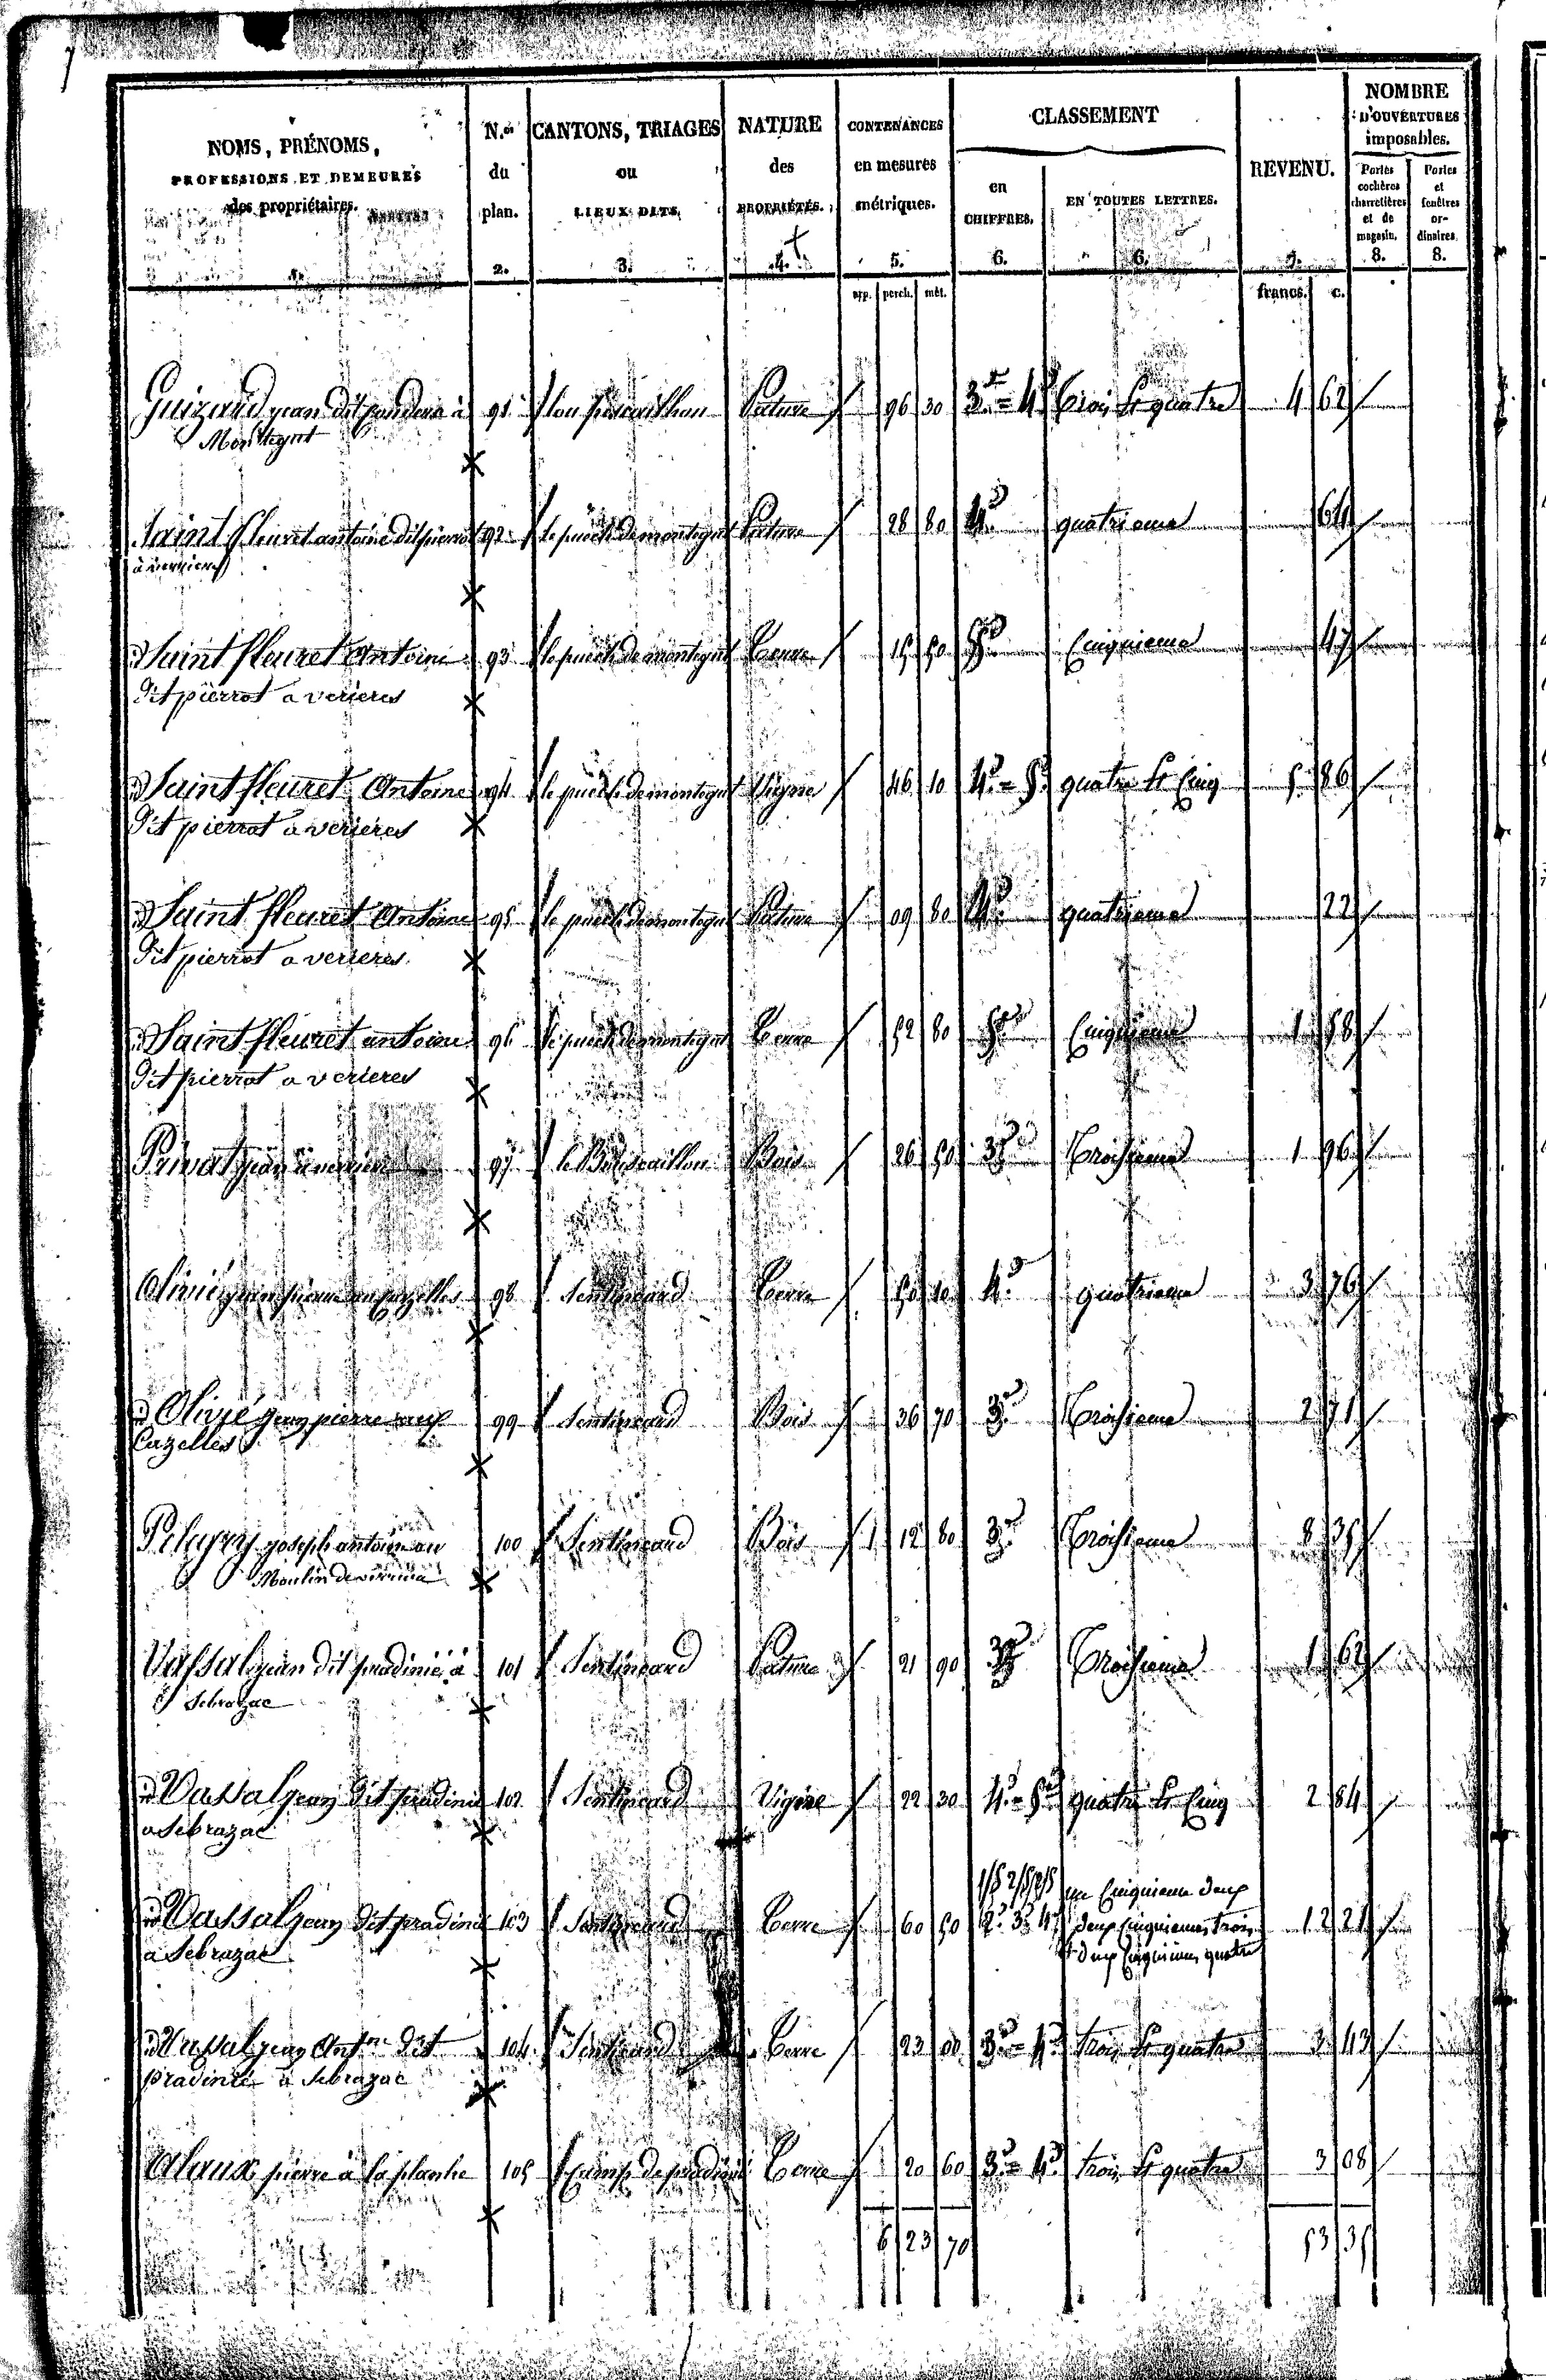 NOMS, PRÉNOMS, PROFESSIONS ET DEMEURES des propriétaires. 1.
N.os du plan. 2.
CANTONS, TRIAGES ou LIEUX DITS 3.
NATURE des PROPRIÉTÉS. 4.
CONTENANCES en mesures métriques. 5.
CLASSEMENT
en CHIFFRES. 6.
EN TOUTES LETTRES. 6.
REVENU. 7.
NOMBRE D'OUVERTURES imposables.
Portes cochères charretières et de magasin. 8.
Portes et fenêtres ordinaires. 8.
arp. perch. mèt. francs. c.
Guizard jean dit à 91 lou Pature 96 30 3e = 4e trois et quatre 4 62
Montegut
Saint fleuret antoine dit pierrot 92 le puech de montegut Pature 28 80 4e quatrieme 64
à verrieres
id Saint fleuret Antoine 93 le puech de montegut Terre 15 50 5e Cinquieme 47
dit pierrot a verieres
id Saint fleuret Antoine 94 le puech de montegut Vigne 46 10 4e = 5e quatre et Cinq 5 86
dit pierrot a verieres
id Saint fleuret Antoine 95 le puech de montegut Pature 09 80 4e quatrieme 22
dit pierrot a verieres
id Saint fleuret antoine 96 le puech de montegut Terre 52 80 5e Cinquieme 1 58
dit pierrot a verieres
Privat jean à 97 le Bouscaillou Bois 26 50 3e Troisieme 1 96
Olivié jean pierre aux Cazelles 98 Sentineard Terre 50 10 4e quatrieme 3 76
id Olivié jean pierre aux 99 Sentineard Bois 36 70 3e Troisieme 2 71
Cazelles
joseph antoine au 100 Sentineard Bois 1 12 80 3e Troisieme 8 35
Moulin de
Vassal jean dit pradinié à 101 Sentineard Pature 21 90 3e Troisieme 1 62
Sebrazac
id Vassal jean dit pradinié 102 Sentineard Vigne 22 30 4e = 5e quatre et Cinq 2 84
a Sebrazac
1/5 2/5 2/5 un Cinquieme deux
id Vassal jean dit pradinié 103 Sentineard Terre 60 50 2e 3e 4e deux Cinquiemes trois 12 21
a Sebrazac et deux Cinquiemes quatre
id Vassal jean Antne dit 104 Sentineard Terre 23 00 3e = 4e trois et quatre 3 43
pradinié à Sebrazac
Alaux pierre à la planhe 105 Camp de pradinié Terre 20 60 3e = 4e trois et quatre 3 08
6 23 70 53 35